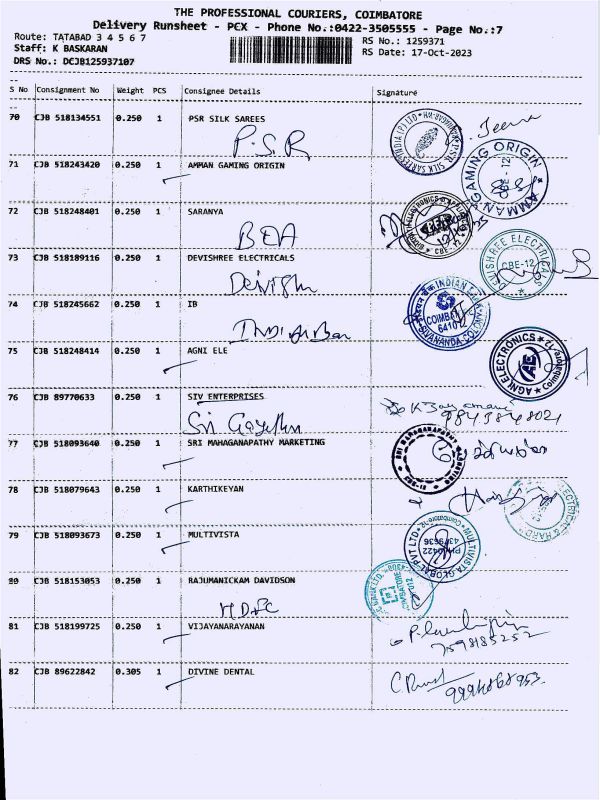 THE PROFESSIONAL COURIERS, COIMBATORE
Delivery Runsheet - PCX - Phone No.:0422-3505555 - Page No.:7
Route: TATABAD 3 4 5 6 7
RS No.: 1259371
Staff: K BASKARAN
RS Date: 17-Oct-2023
DRS No.: DCJB125937107
S No Consignment No Weight PCS Consignee Details Signature
70 CJB 518134551 0.250 1 PSR SILK SAREES
P.S.R
71 CJB 518243420 0.250 1 AMMAN GAMING ORIGIN
AMMAN GAMING ORIGIN
CBE-12
72 CJB 518248401 0.250 1 SARANYA
CBE-12
73 CJB 518189116 0.250 1 DEVISHREE ELECTRICALS
CBE-12
74 CJB 518245662 0.250 1 IB
INDIAN
SIVANANDA COLONY
75 CJB 518248414 0.250 1 AGNI ELE
AGNI ELECTRONICS
AE
Coimbatore
76 CJB 89770633 0.250 1 SIV ENTERPRISES
77 CJB 518093640 0.250 1 SRI MAHAGANAPATHY MARKETING
78 CJB 518079643 0.250 1 KARTHIKEYAN
79 CJB 518093673 0.250 1 MULTIVISTA
MULTIVISTA GLOBAL PVT LTD
Coimbatore-12
PH:0422
4379636
80 CJB 518153053 0.250 1 RAJUMANICKAM DAVIDSON
HDFC
81 CJB 518199725 0.250 1 VIJAYANARAYANAN
7598185252
82 CJB 89622842 0.305 1 DIVINE DENTAL